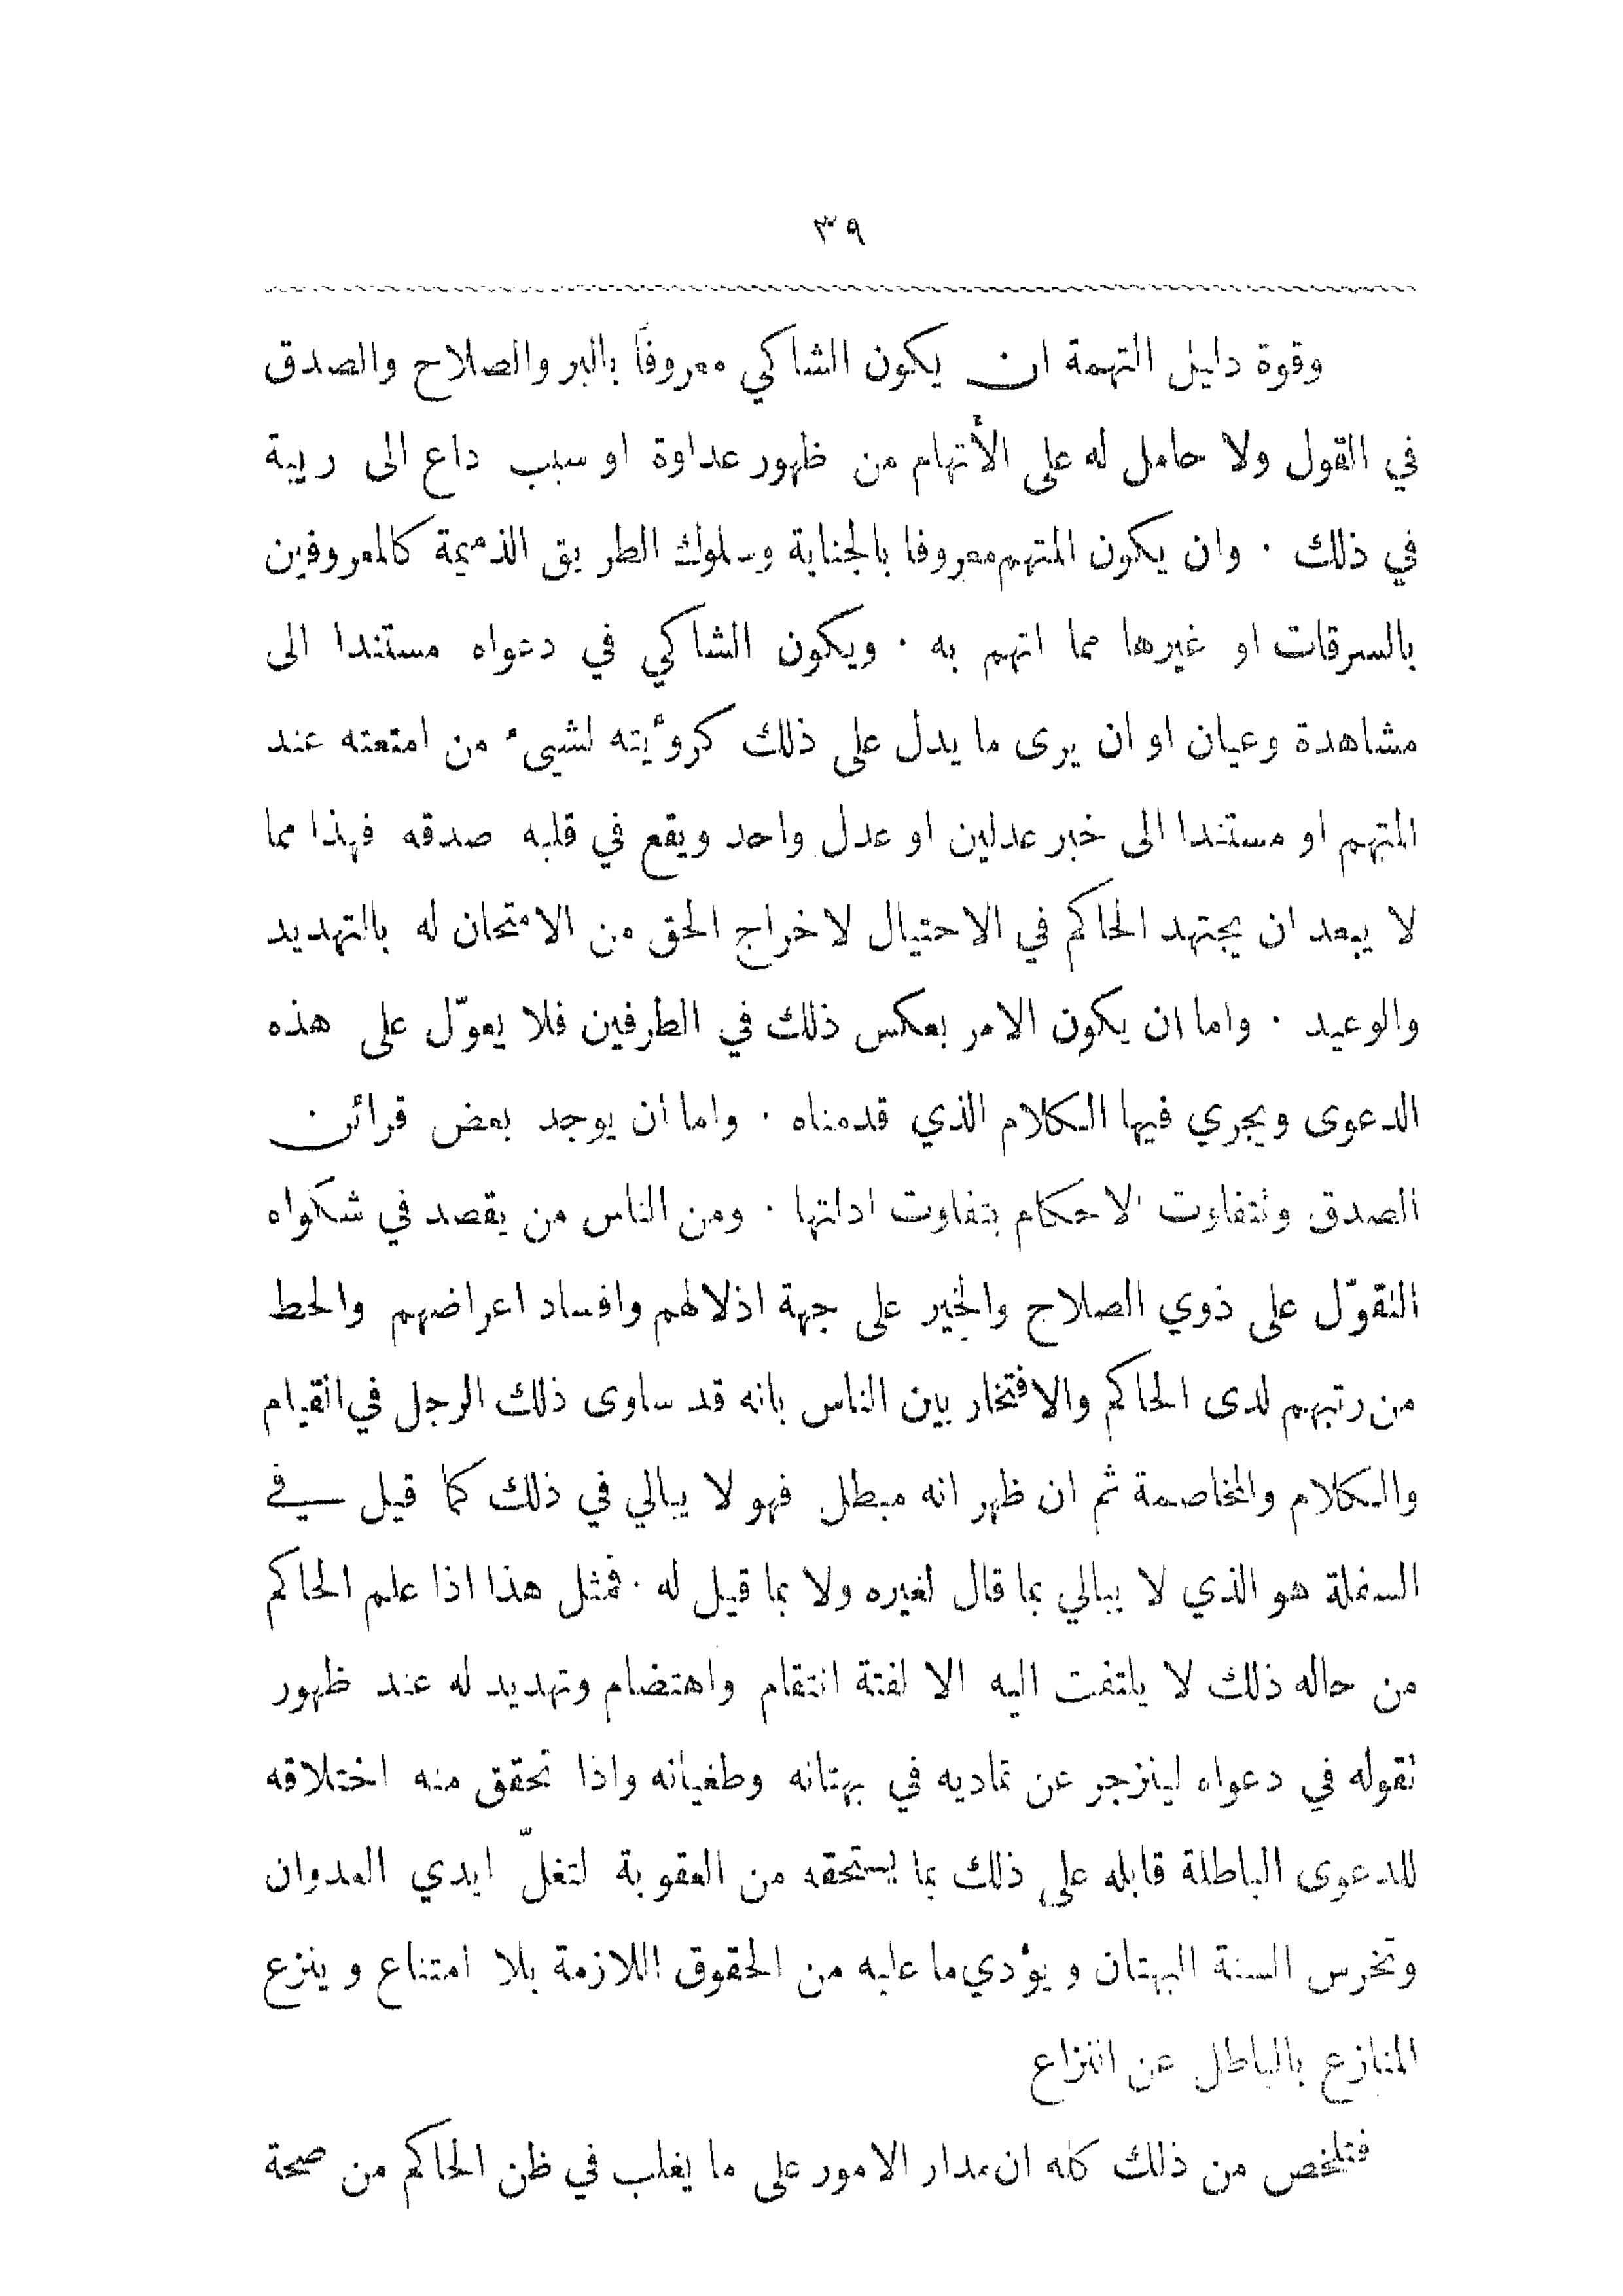 ٣٩
وقوة دليل التهمة ان يكون الشاكي معروفًا بالبر والصلاح والصدق
في القول ولا حامل له على الأتهام من ظهور عداوة او سبب داع الى ريبة
في ذلك . وان يكون المتهم معروفا بالجناية وسلوك الطريق الذميمة كالمعروفين
بالسرقات او غيرها مما اتهم به . ويكون الشاكي في دعواه مستندا الى
مشاهدة وعيان او ان يرى ما يدل على ذلك كروٴيته لشيىء من امتعته عند
المتهم او مستندا الى خبر عدلين او عدل واحد ويقع في قلبه صدقه فهذا مما
لا يبعد ان يجتهد الحاكم في الاحتيال لاخراج الحق من الامتحان له بالتهديد
والوعيد . واما ان يكون الامر بعكس ذلك في الطرفين فلا يعوّل على هذه
الدعوى ويجري فيها الكلام الذي قدمناه . واما أن يوجد بعض قرائن
الصدق وتتفاوت الاحكام بتفاوت ادلتها . ومن الناس من يقصد في شكواه
التقوّل على ذوي الصلاح والخير على جهة اذلالهم وافساد اعراضهم والحط
من رتبهم لدى الحاكم والافتخار بين الناس بانه قد ساوى ذلك الرجل في القيام
والكلام والمخاصمة ثم ان ظهر انه مبطل فهو لا يبالي في ذلك كما قيل في
السفلة هو الذي لا يبالي بما قال لغيره ولا بما قيل له . فمثل هذا اذا علم الحاكم
من حاله ذلك لا يلتفت اليه الا لفتة انتقام واهتضام وتهديد له عند ظهور
تقوله في دعواه لينزجر عن تماديه في بهتانه وطغيانه واذا تحقق منه اختلاقه
للدعوى الباطلة قابله على ذلك بما يستحقه من العقوبة لتغلّ ايدي العدوان
وتخرس السنة البهتان ويؤدي ما عليه من الحقوق اللازمة بلا امتناع وينزع
المنازع بالباطل عن انتزاع
فتلخص من ذلك كله ان مدار الامور على ما يغلب في ظن الحاكم من صحة